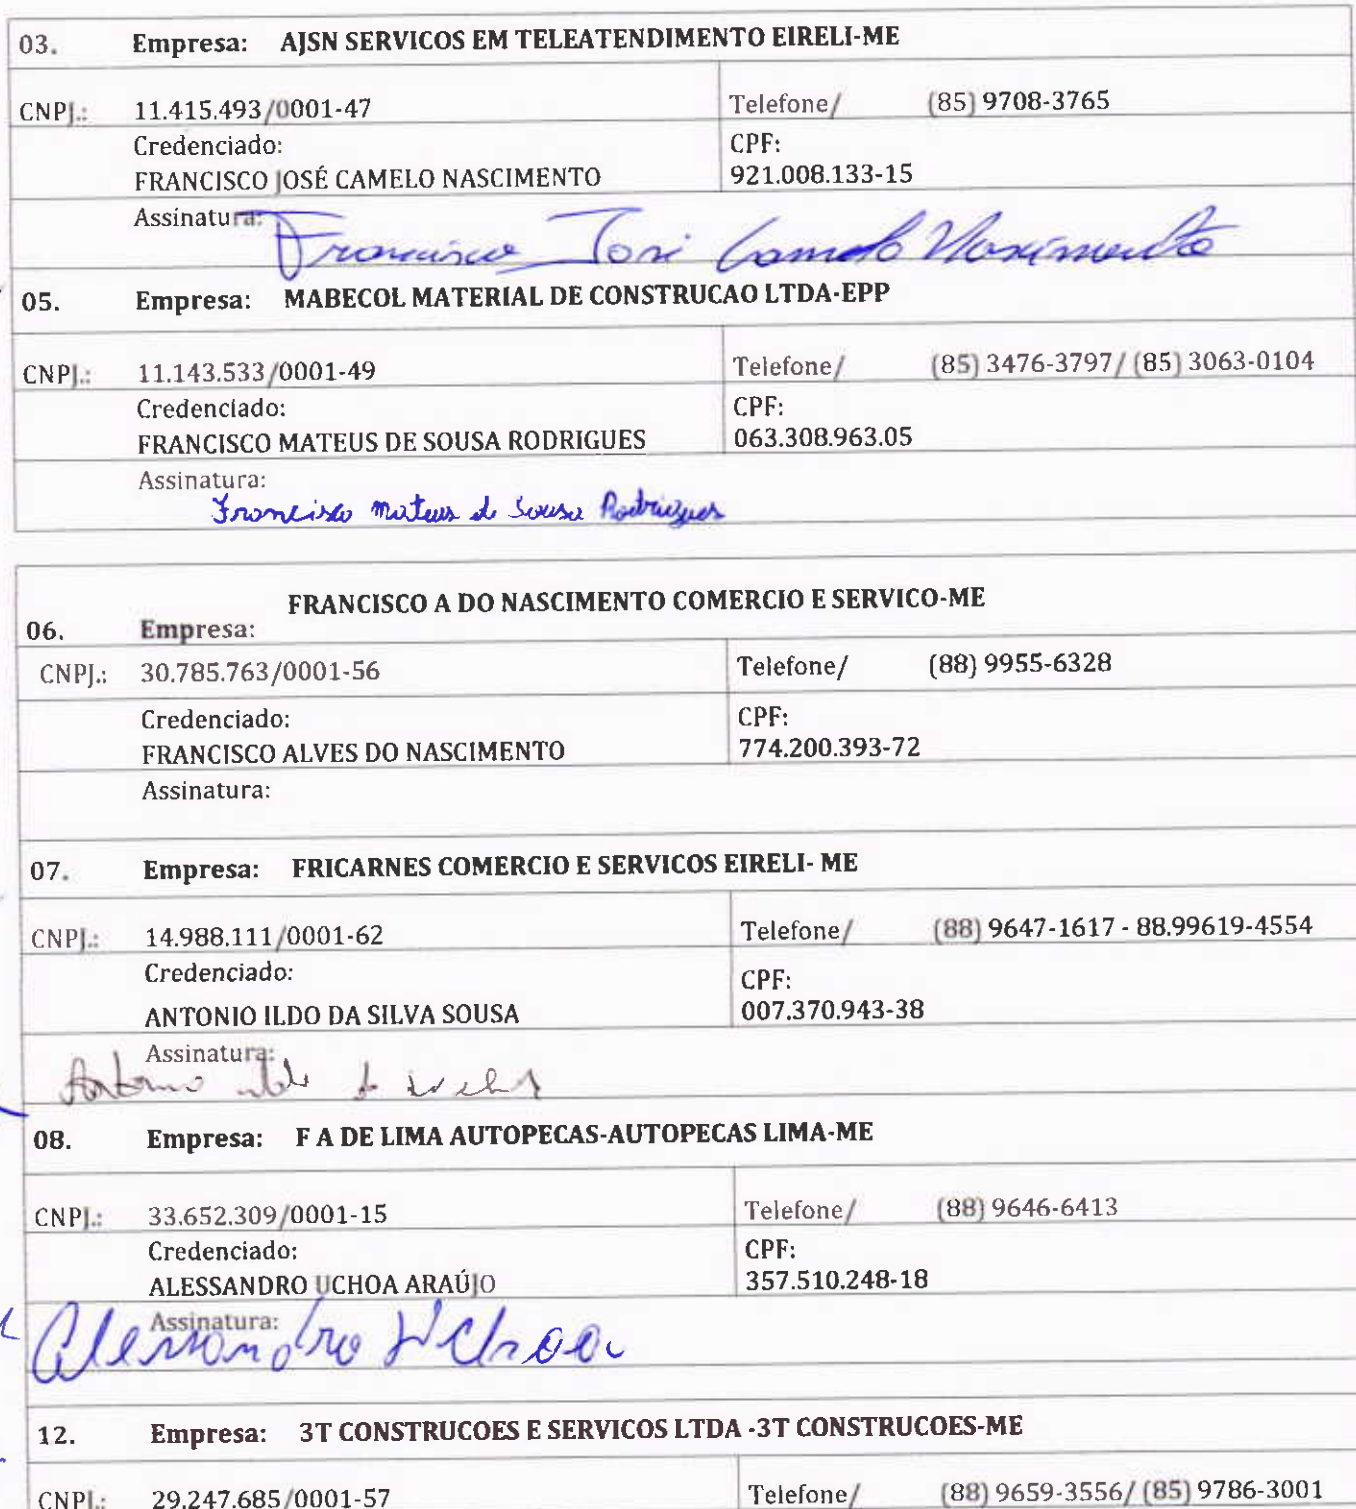 03. Empresa: AJSN SERVICOS EM TELEATENDIMENTO EIRELI-ME
CNPJ.: 11.415.493/0001-47 Telefone/ (85) 9708-3765
Credenciado: CPF:
FRANCISCO JOSÉ CAMELO NASCIMENTO 921.008.133-15
Assinatura: Francisco José Camelo Nascimento
05. Empresa: MABECOL MATERIAL DE CONSTRUCAO LTDA-EPP
CNPJ.: 11.143.533/0001-49 Telefone/ (85) 3476-3797/ (85) 3063-0104
Credenciado: CPF:
FRANCISCO MATEUS DE SOUSA RODRIGUES 063.308.963.05
Assinatura:
Francisco Mateus de Sousa Rodrigues
FRANCISCO A DO NASCIMENTO COMERCIO E SERVICO-ME
06. Empresa:
CNPJ.: 30.785.763/0001-56 Telefone/ (88) 9955-6328
Credenciado: CPF:
FRANCISCO ALVES DO NASCIMENTO 774.200.393-72
Assinatura:
07. Empresa: FRICARNES COMERCIO E SERVICOS EIRELI- ME
CNPJ.: 14.988.111/0001-62 Telefone/ (88) 9647-1617 - 88.99619-4554
Credenciado: CPF:
ANTONIO ILDO DA SILVA SOUSA 007.370.943-38
Assinatura:
Antonio
08. Empresa: F A DE LIMA AUTOPECAS-AUTOPECAS LIMA-ME
CNPJ.: 33.652.309/0001-15 Telefone/ (88) 9646-6413
Credenciado: CPF:
ALESSANDRO UCHOA ARAÚJO 357.510.248-18
Assinatura:
Alessandro Uchoa
12. Empresa: 3T CONSTRUCOES E SERVICOS LTDA -3T CONSTRUCOES-ME
CNPJ.: 29.247.685/0001-57 Telefone/ (88) 9659-3556/ (85) 9786-3001